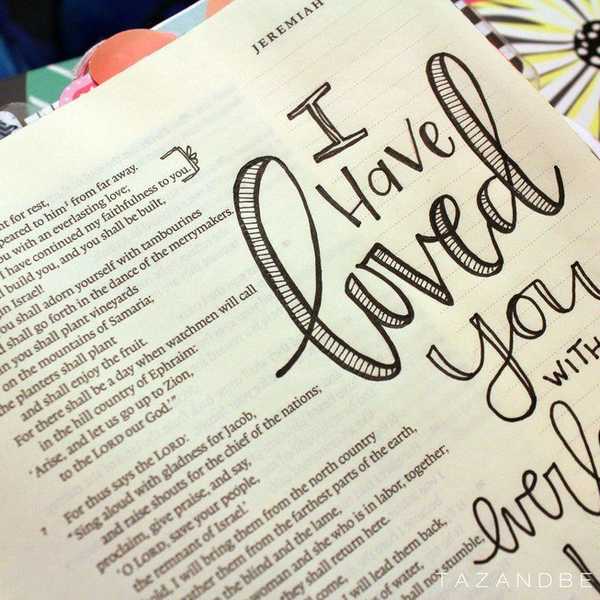 JEREMIAH
t for rest,
peared to him³ from far away.
you with an everlasting love;
I have continued my faithfulness to you.
I build you, and you shall be built,
in Israel!
you shall adorn yourself with tambourines
shall go forth in the dance of the merrymakers.
in you shall plant vineyards
on the mountains of Samaria;
the planters shall plant
and shall enjoy the fruit.
For there shall be a day when watchmen will call
in the hill country of Ephraim:
'Arise, and let us go up to Zion,
to the LORD our God.'"
7 For thus says the LORD:
"Sing aloud with gladness for Jacob,
and raise shouts for the chief of the nations;
proclaim, give praise, and say,
'O LORD, save your people,
the remnant of Israel.'
I will bring them from the north country
gather them from the farthest parts of the earth,
the blind and the lame,
woman and she who is in labor, together;
they shall return here.
come,
I will lead them back,
of water,
shall not stumble,
I
Have
loved
you
WITH
everl
TAZANDBE